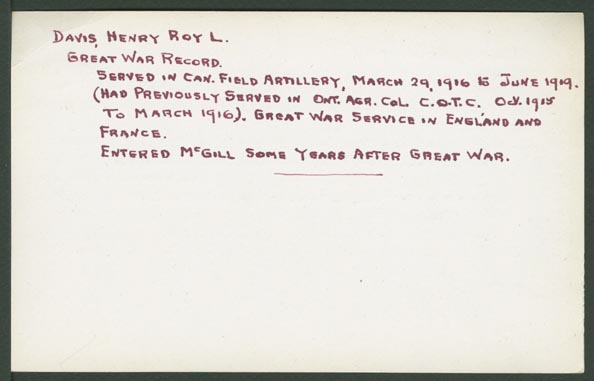 Davis, Henry Roy L.
Great War Record.
Served in Can. Field Artillery, March 29, 1916 to June 1919.
(Had Previously Served in Ont. Agr. Col. C.O.T.C. Oct. 1915
to March 1916). Great War Service in England and
France.
Entered McGill Some Years After Great War.